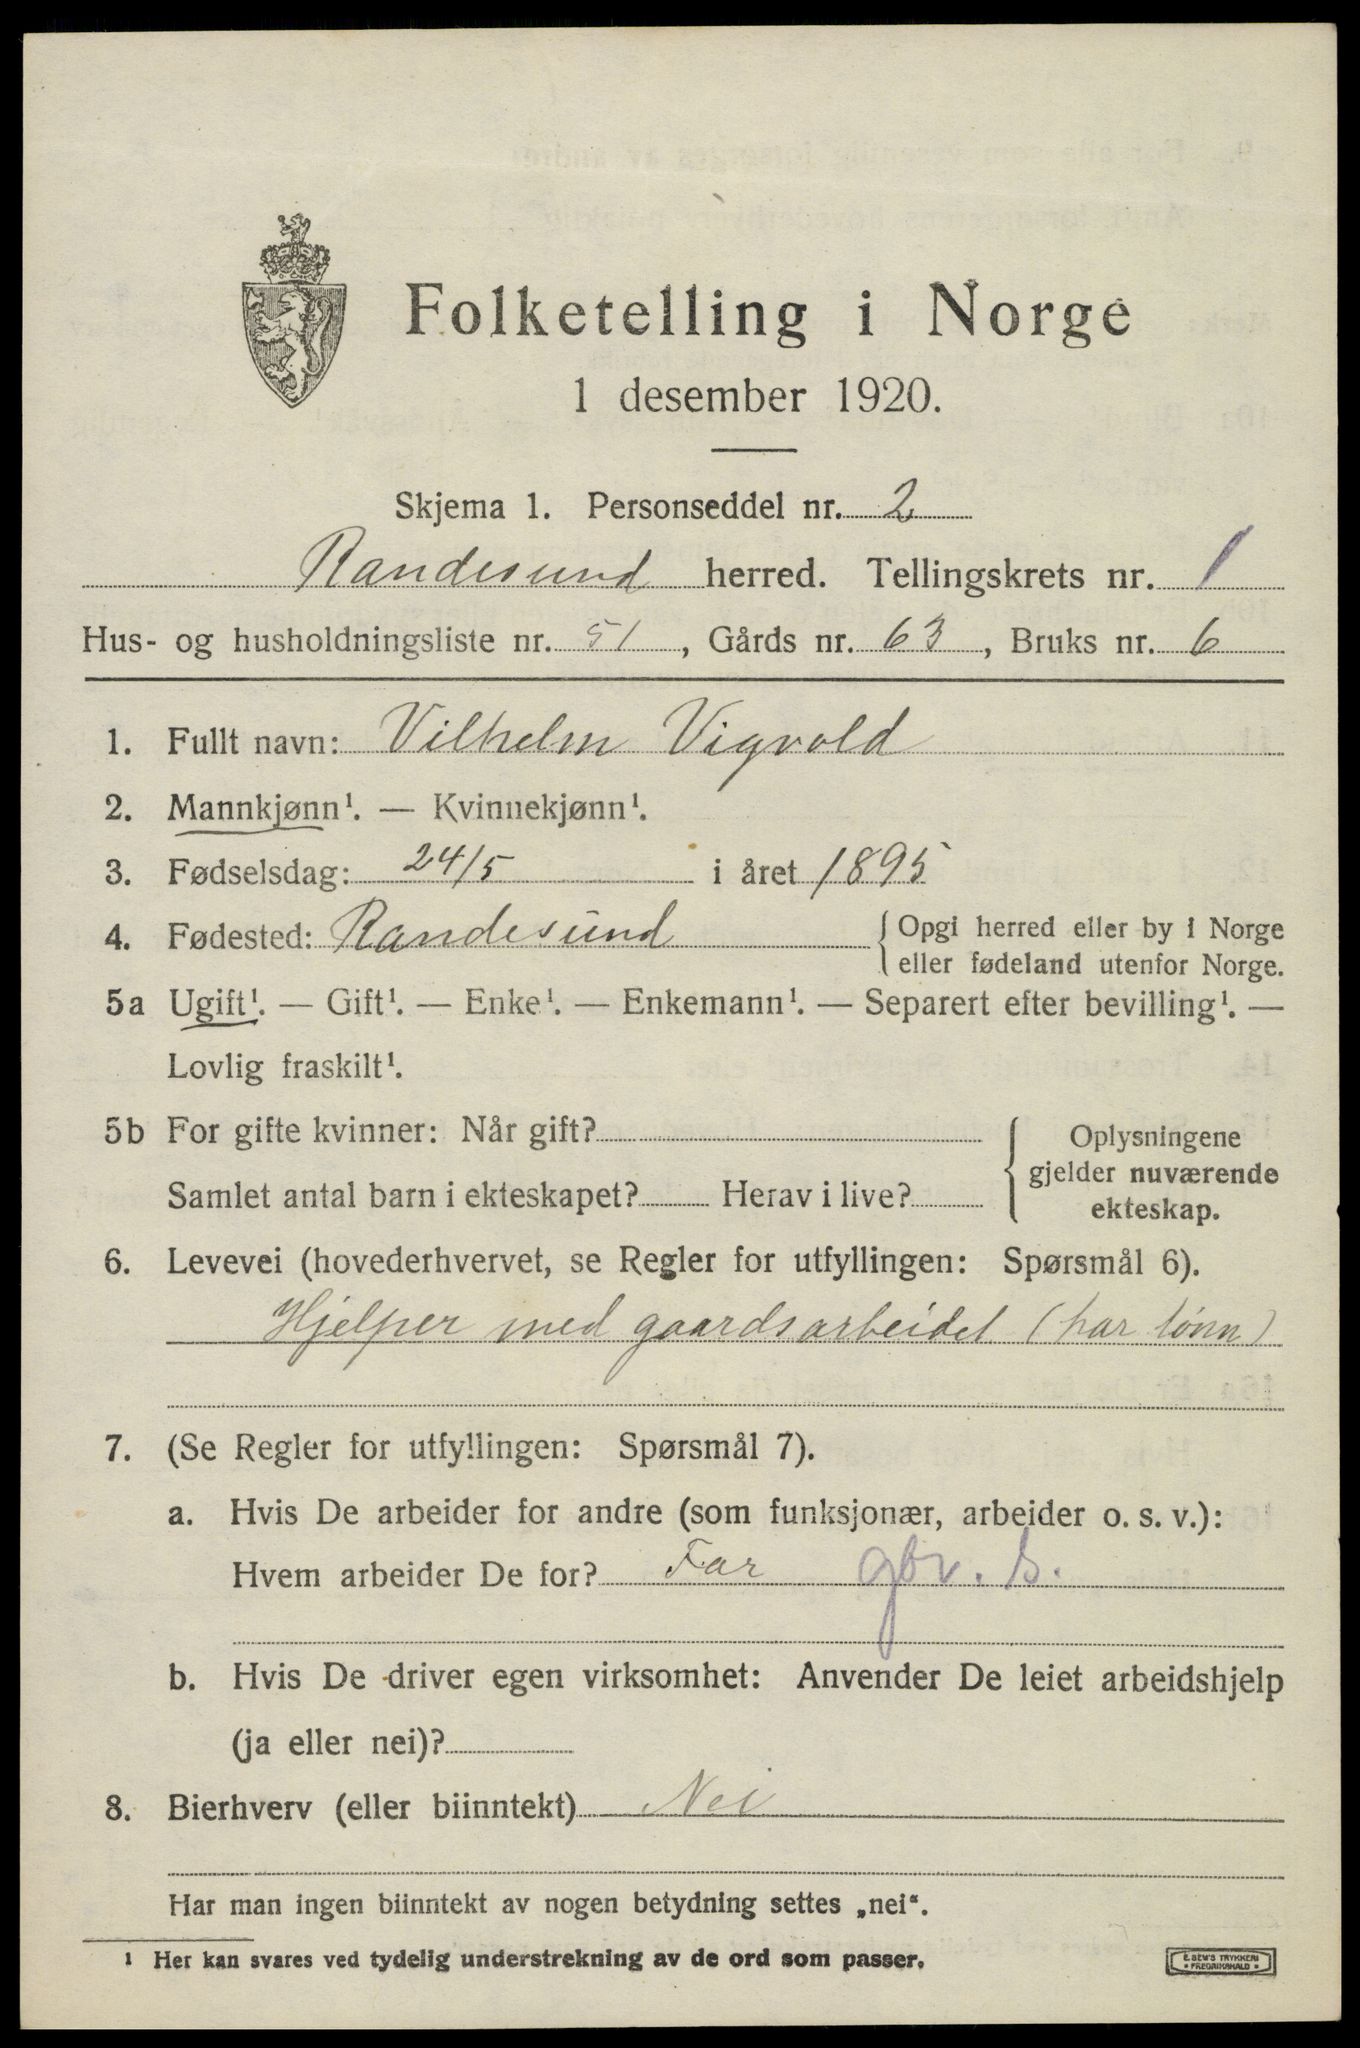 Folketelling i Norge
1 desember 1920.
Skjema 1. Personseddel nr. 2
Randesund herred. Tellingskrets nr. 1
Hus- og husholdningsliste nr. 51, Gårds nr. 63, Bruks nr. 6
1. Fullt navn: Vilhelm Vigvold
2. Mannkjønn¹. — Kvinnekjønn¹.
3. Fødselsdag: 24/5 i året 1895
4. Fødested: Randesund { Opgi herred eller by i Norge
eller fødeland utenfor Norge.
5a Ugift¹. — Gift¹. — Enke¹. — Enkemann¹. — Separert efter bevilling¹. —
Lovlig fraskilt¹.
5b For gifte kvinner: Når gift?
Samlet antal barn i ekteskapet? Herav i live?
Oplysningene
gjelder nuværende
ekteskap.
6. Levevei (hovederhvervet, se Regler for utfyllingen: Spørsmål 6).
Hjelper med gaardsarbeidet (har lønn)
7. (Se Regler for utfyllingen: Spørsmål 7).
a. Hvis De arbeider for andre (som funksjonær, arbeider o. s. v.):
Hvem arbeider De for? Far gbr. s.
b. Hvis De driver egen virksomhet: Anvender De leiet arbeidshjelp
(ja eller nei)?
8. Bierhverv (eller biinntekt) Nei
Har man ingen biinntekt av nogen betydning settes „nei“.
¹ Her kan svares ved tydelig understrekning av de ord som passer.
E. SEM'S TRYKKERI
FREDRIKSHALD